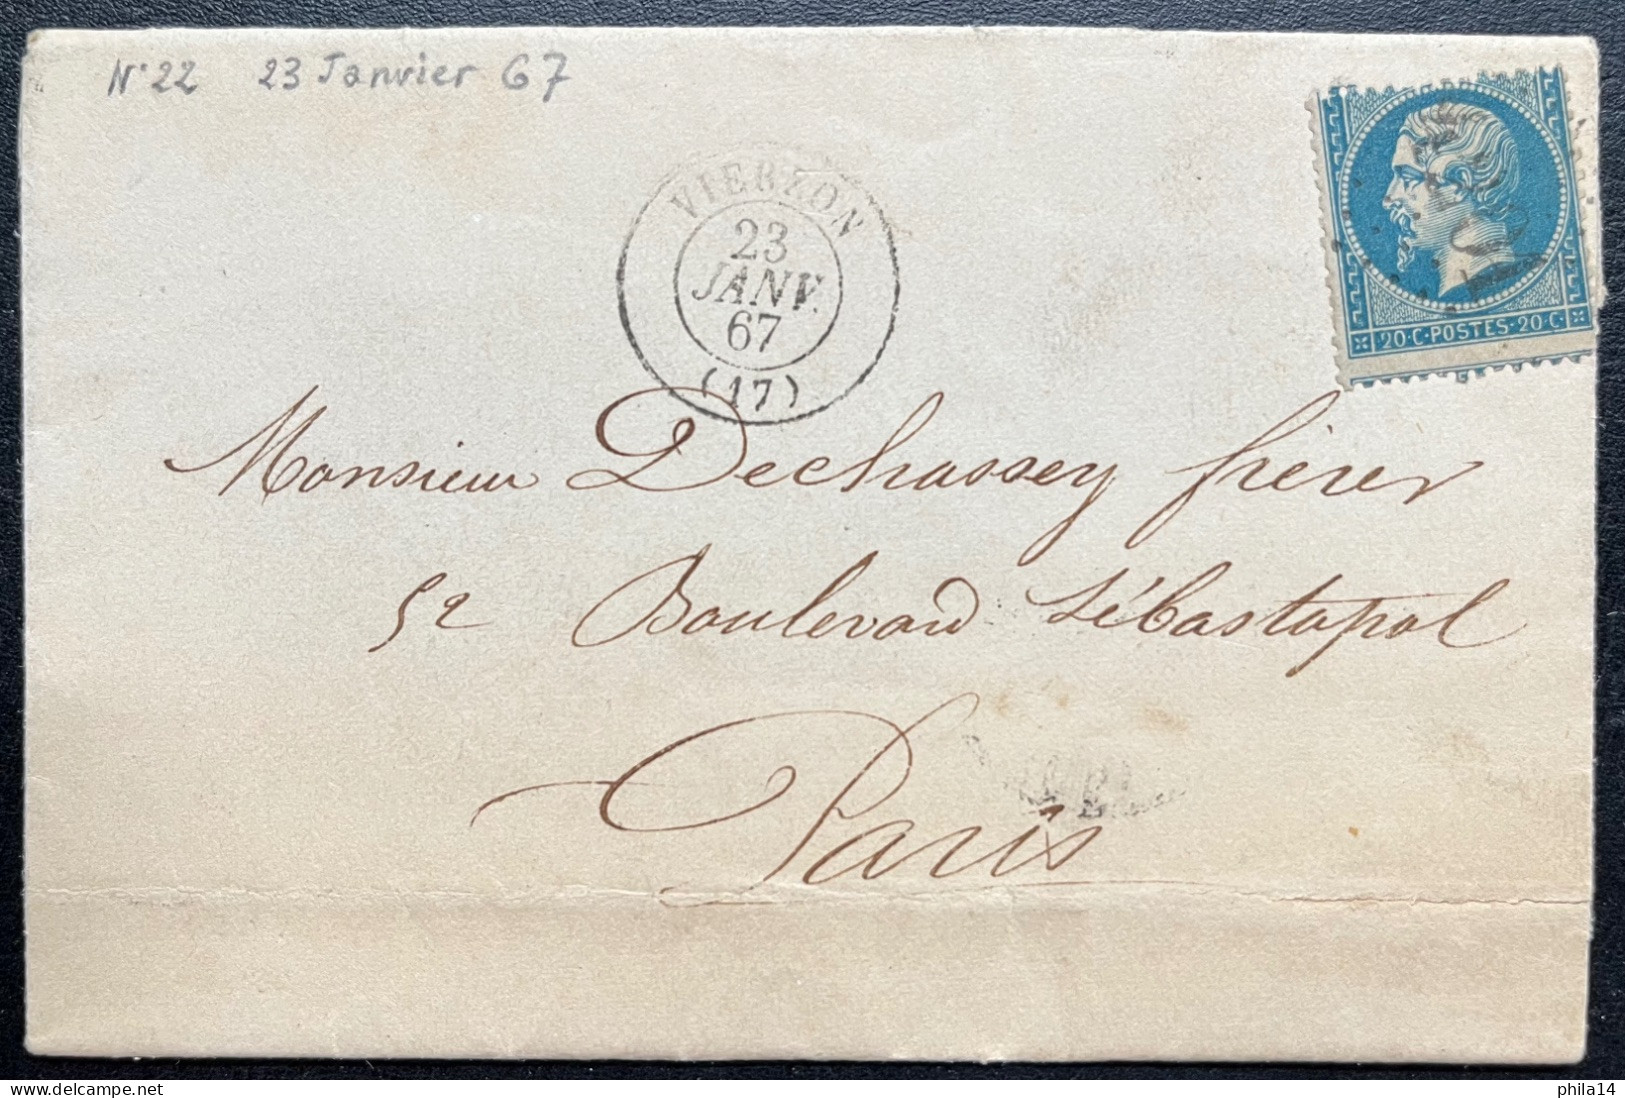 N° 22 23 Janvier 67
VIERZON
23
JANV.
67
(17)
20·C·POSTES·20·C·
Monsieur Dechassey frères
52 Boulevard Sébastopol
Paris
phila14